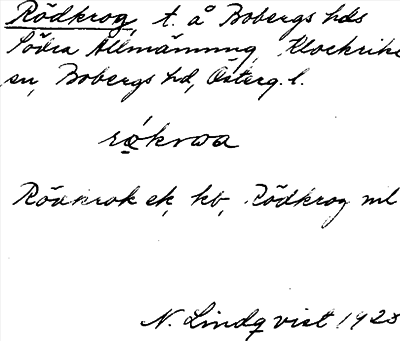 Rödkrog, t. å Bobergs hds
Södra Allmänning, Klockrike
sn, Bobergs hd, Österg. l.
Rödkrok ek, kb, Rödkrog ml
N. Lindqvist 1925